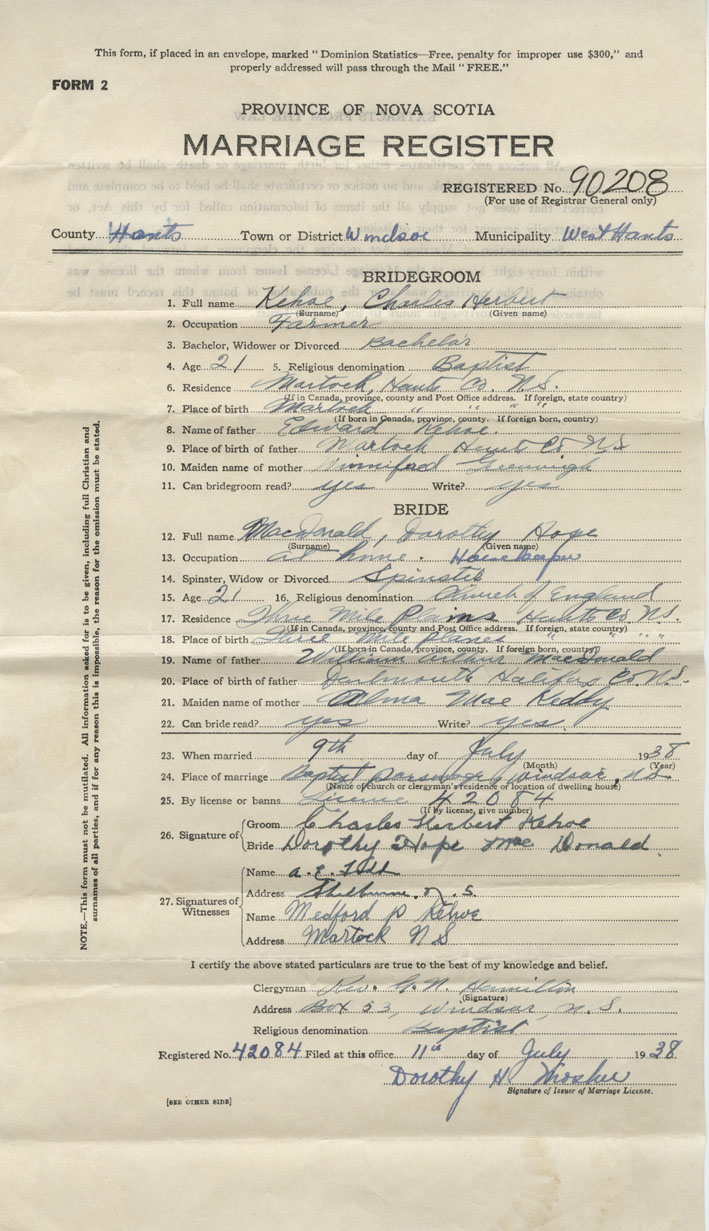 This form, if placed in an envelope, marked "Dominion Statistics—Free, penalty for improper use $300," and
properly addressed will pass through the Mail "FREE."
FORM 2
PROVINCE OF NOVA SCOTIA
MARRIAGE REGISTER
REGISTERED No. 90208
(For use of Registrar General only)
County Hants Town or District Windsor Municipality West Hants
BRIDEGROOM
1. Full name Kehoe, Charles Herbert
(Surname) (Given name)
2. Occupation Farmer
3. Bachelor, Widower or Divorced Bachelor
4. Age 21 5. Religious denomination Baptist
6. Residence Martock, Hants Co. N.S.
(If in Canada, province, county and Post Office address. If foreign, state country)
7. Place of birth Martock " " " "
(If born in Canada, province, county. If foreign born, country)
8. Name of father Edward Kehoe.
9. Place of birth of father Martock Hants Co N.S
10. Maiden name of mother Winnifred
11. Can bridegroom read? yes Write? yes
BRIDE
12. Full name MacDonald, Dorothy Hope
(Surname) (Given name)
13. Occupation at home. Housekeeper
14. Spinster, Widow or Divorced Spinster
15. Age 21 16. Religious denomination Church of England
17. Residence Three Mile Plains Hants Co N.S.
(If in Canada, province, county and Post Office address. If foreign, state country)
18. Place of birth Three Mile Planes " " " "
(If born in Canada, province, county. If foreign born, country)
19. Name of father William Arthur Macdonald
20. Place of birth of father Dartmouth Halifax Co. N.S.
21. Maiden name of mother Alma Mae Keddy
22. Can bride read? yes Write? yes
23. When married 9th day of July 1938
(Month) (Year)
24. Place of marriage Baptist parsonage, Windsor, N.S.
(Name of church or clergyman's residence or location of dwelling house)
25. By license or banns License 42084
(If by license, give number)
26. Signature of
Groom Charles Herbert Kehoe
Bride Dorothy Hope MacDonald
27. Signatures of Witnesses
Name
Address Shelburne, N.S.
Name Medford P Kehoe
Address Martock N S
I certify the above stated particulars are true to the best of my knowledge and belief.
Clergyman Rev. G. N. Hamilton
(Signature)
Address Box 53, Windsor, N.S.
Religious denomination Baptist
Registered No. 42084 Filed at this office 11th day of July 1938
Dorothy H Mosher
Signature of Issuer of Marriage License.
[SEE OTHER SIDE]
NOTE.—This form must not be mutilated. All information asked for is to be given, including full Christian and
surnames of all parties, and if for any reason this is impossible, the reason for the omission must be stated.